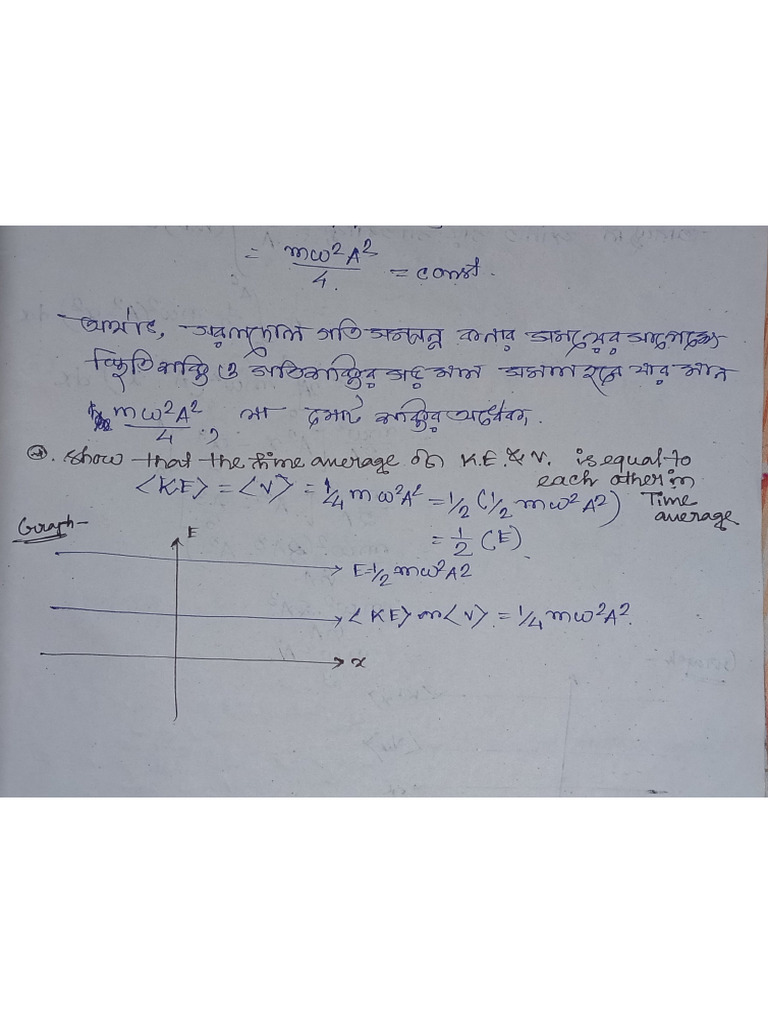 = mω²A²/4 = const.
অর্থাৎ, সরলদোল গতি সম্পন্ন কনার সময়ের সাপেক্ষে
স্থিতিশক্তি ও গতিশক্তির গড় মান সমান হবে যার মান
mω²A²/4, যা মোট শক্তির অর্ধেক।
⊛. show that the time average of K.E. & V. is equal to each other in Time average
⟨K.E⟩ = ⟨V⟩ = 1/4 mω²A² = 1/2 (1/2 mω²A²)
= 1/2 (E)
Graph-
E
E=1/2 mω²A2
⟨K.E⟩ or ⟨V⟩ = 1/4 mω²A².
x